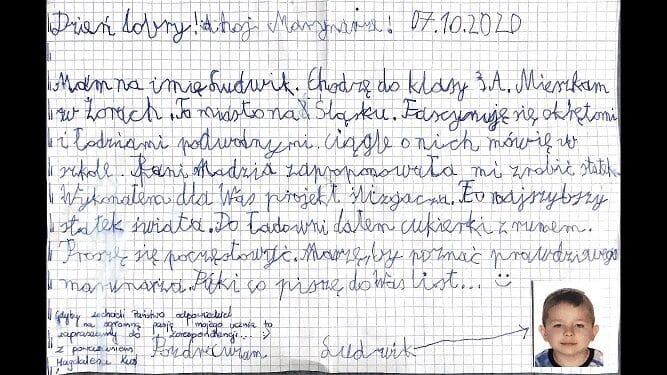 Dzień dobry! Ahoj Marynarze! 07.10.2020
Mam na imię Ludwik. Chodzę do klasy 3A. Mieszkam
w Żorach. To miasto na Śląsku. Fascynuję się okrętami
i łodziami podwodnymi. Ciągle o nich mówię w
szkole. Pani Madzia zaproponowała mi zrobić statek.
Wykonałem dla Was projekt ślizgacza. To najszybszy
statek świata. Do ładowni dałem cukierki z rumem.
Proszę się poczęstować. Marzę, by poznać prawdziwego
marynarza. Póki co piszę do Was list... :)
Gdyby zechcieli Państwo odpowiedzieć
na ogromną pasję mojego ucznia to
zapraszamy do korespondencji... :)
Z poważaniem
Magdalena
Pozdrawiam Ludwik